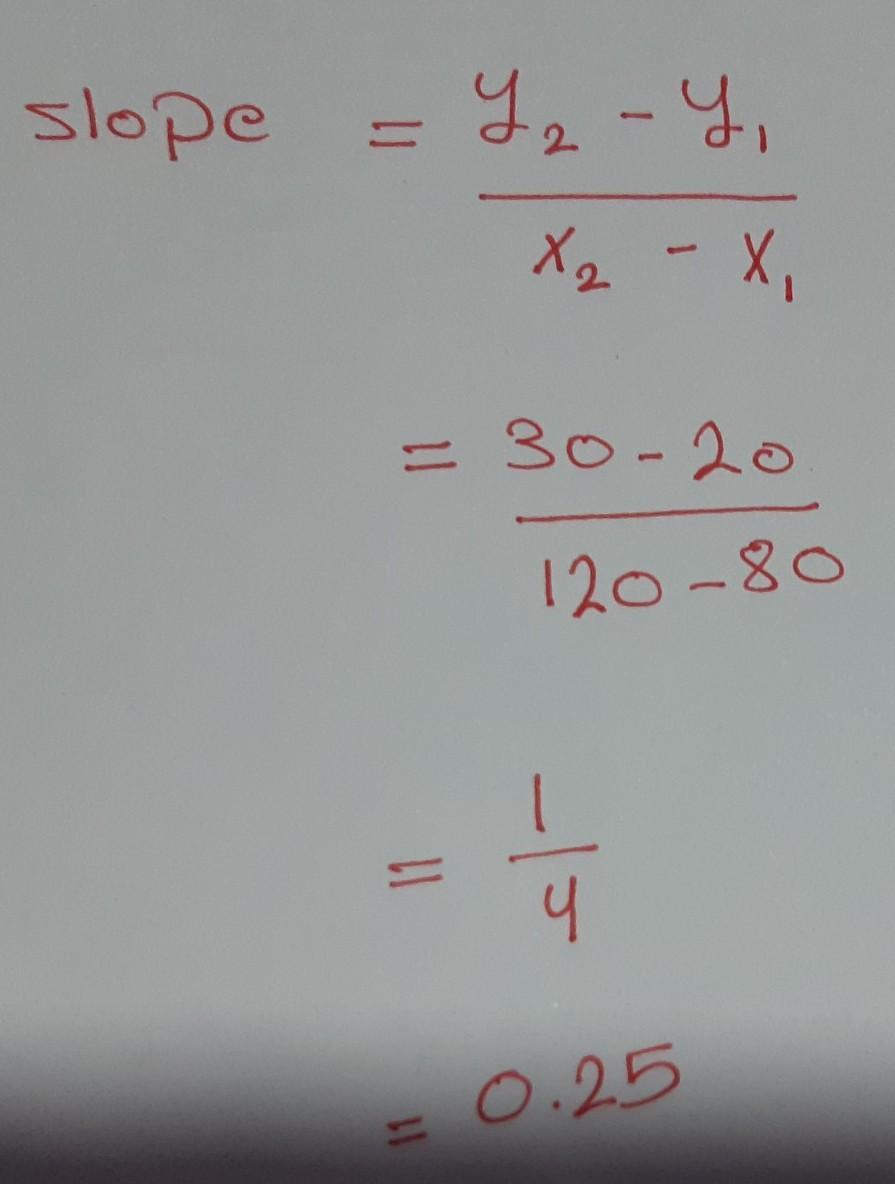 slope = y₂ - y₁
x₂ - x₁
= 30 - 20
120 - 80
= 1
4
= 0.25